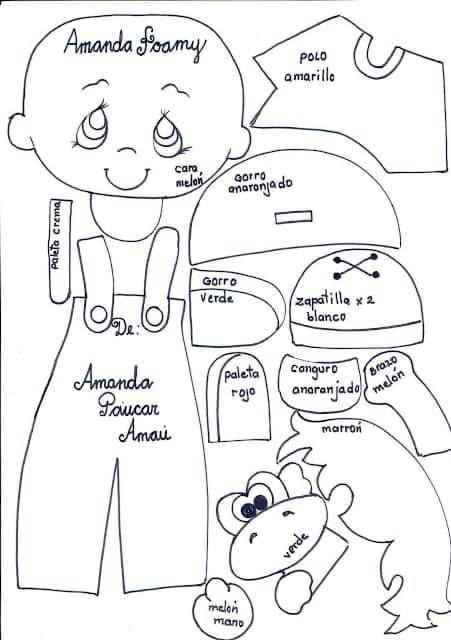 Amanda Foamy
POLO
amarillo
cara
melón
GORRO
anaranjado
paleta crema
GORRO
verde
zapatilla x 2
blanco
De:
Amanda
Páucar
Amaú
paleta
rojo
canguro
anaranjado
BRAZO
melón
marrón
verde
melón
mano